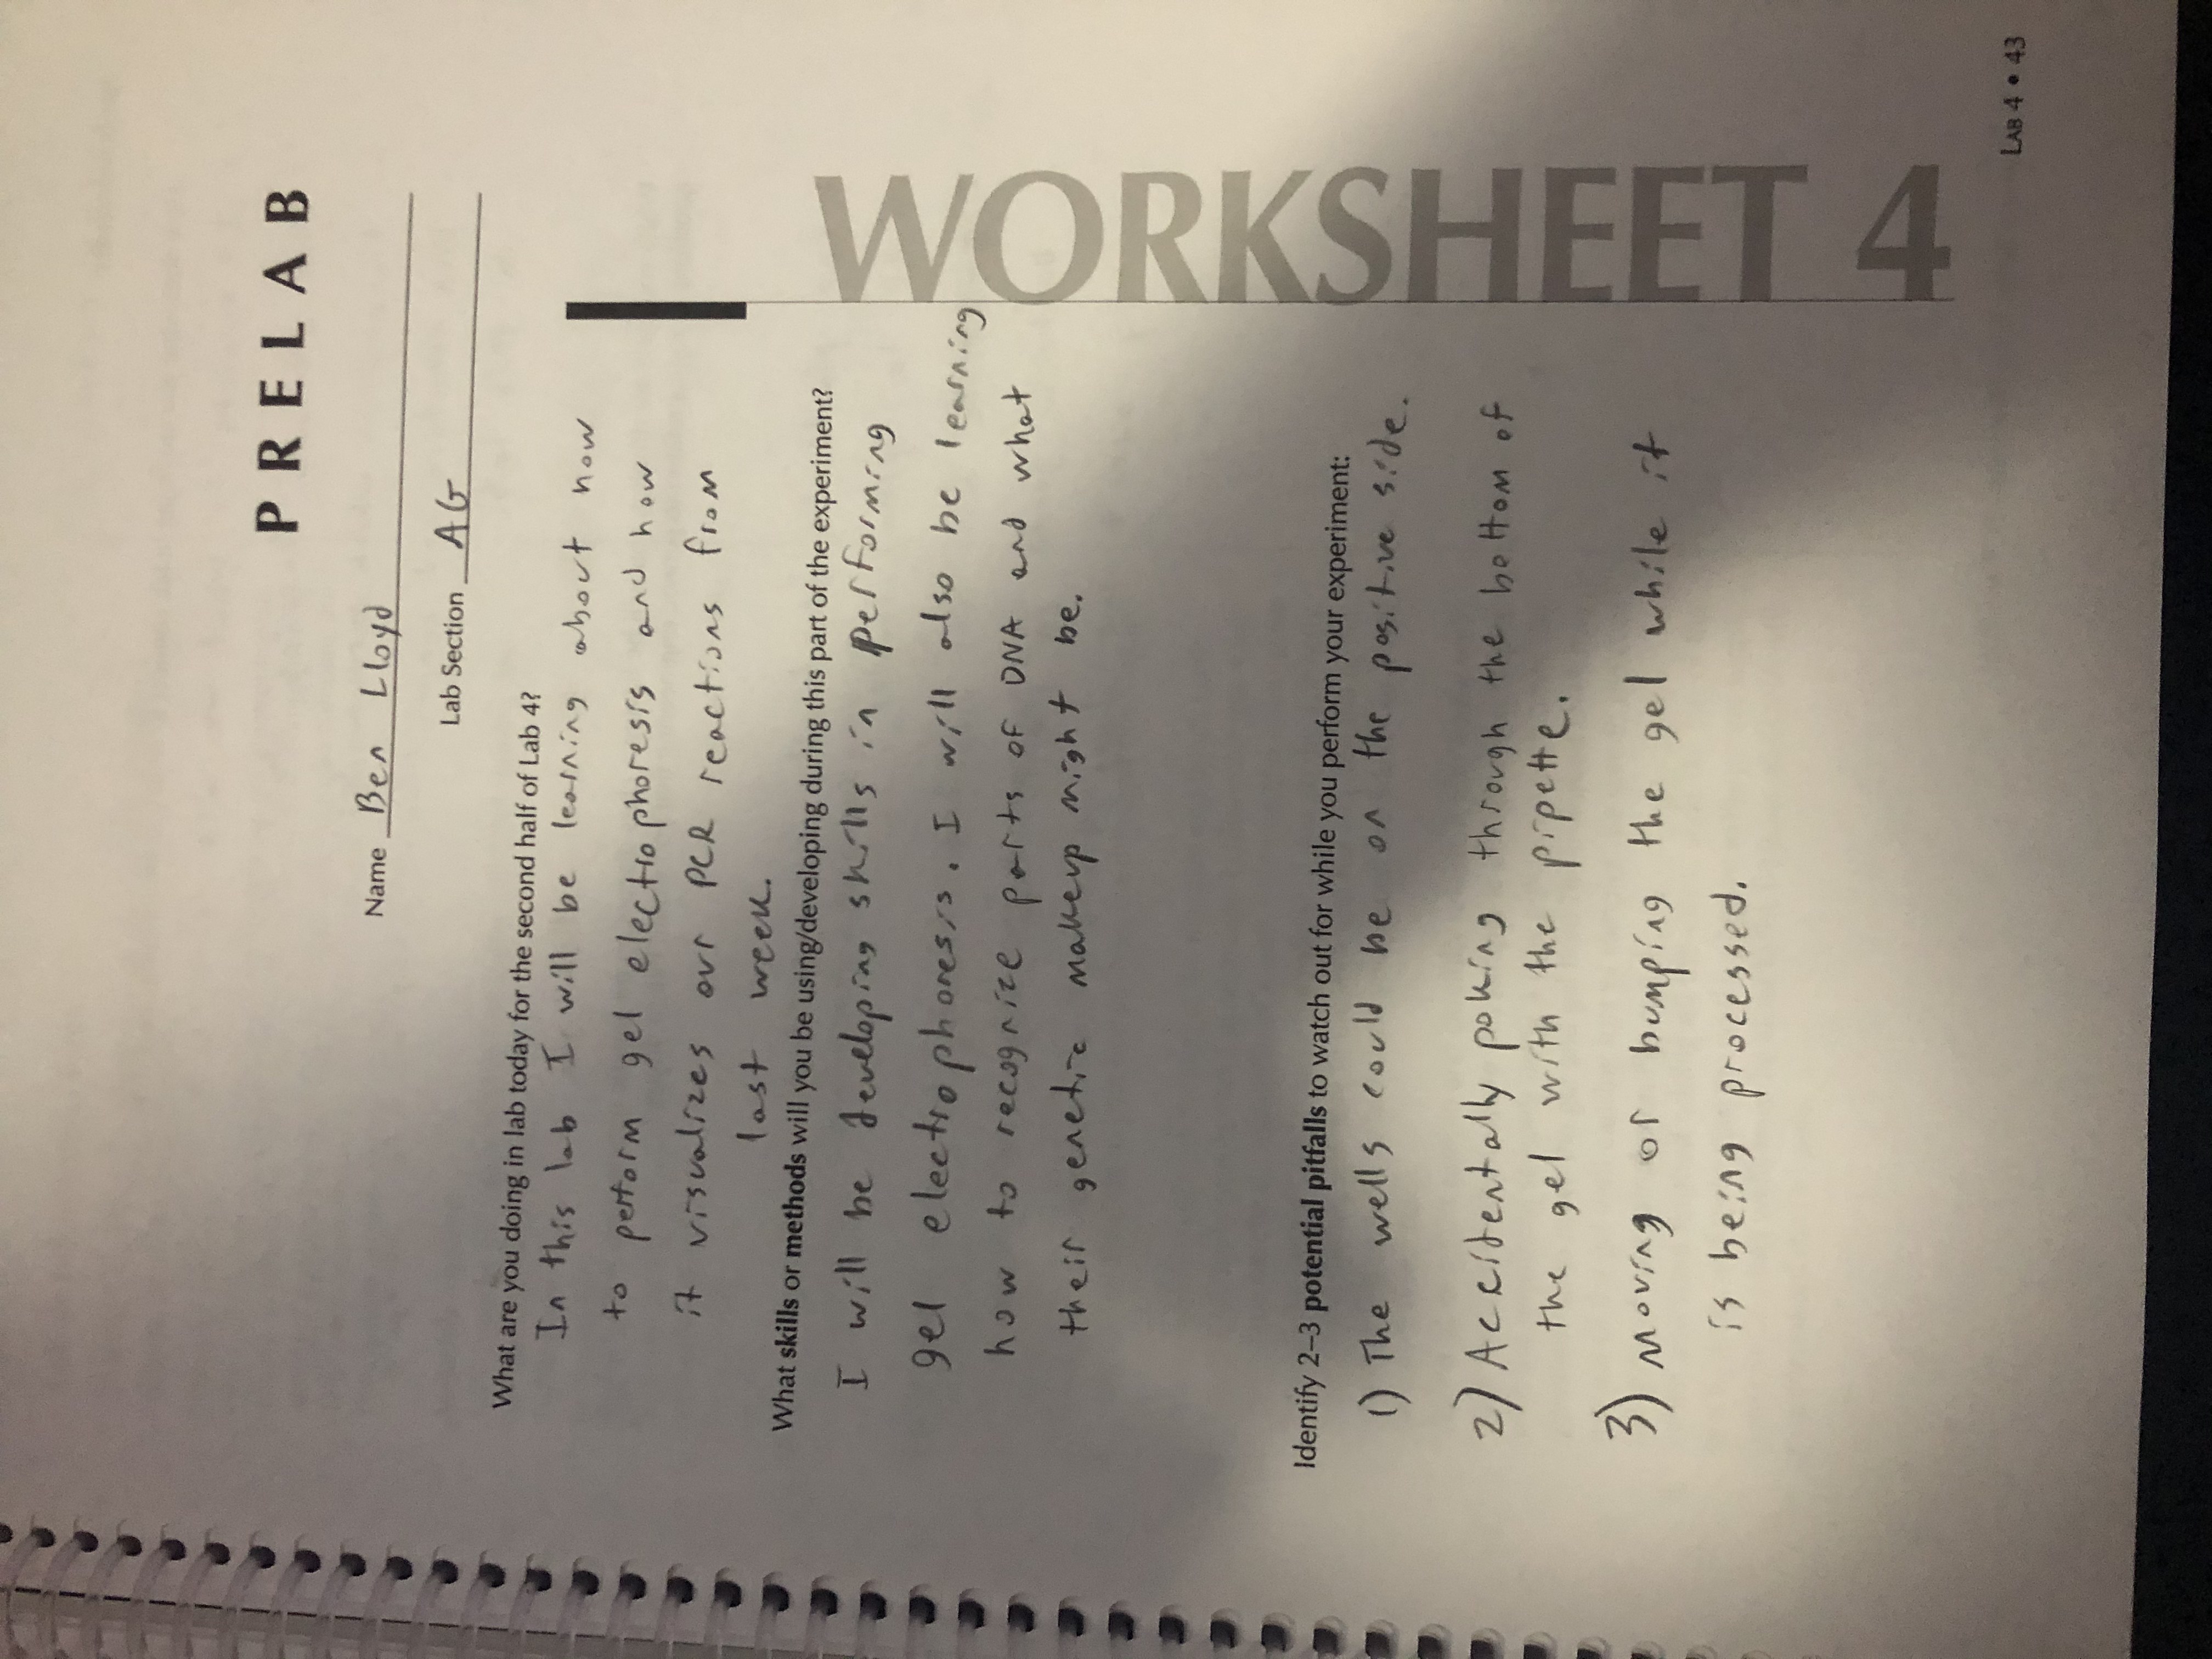 PRELAB
Name Ben Lloyd
Lab Section AG
What are you doing in lab today for the second half of Lab 4?
In this lab I will be learning about how
to perform gel electrophoresis and how
it visualizes our PCR reactions from
last week.
What skills or methods will you be using/developing during this part of the experiment?
I will be developing skills in performing
gel electrophoresis. I will also be learning
how to recognize parts of DNA and what
their genetic makeup might be.
Identify 2–3 potential pitfalls to watch out for while you perform your experiment:
1) The wells could be on the positive side.
2) Accidentally poking through the bottom of
the gel with the pipette.
3) Moving or bumping the gel while it
is being processed.
WORKSHEET 4
LAB 4 • 43